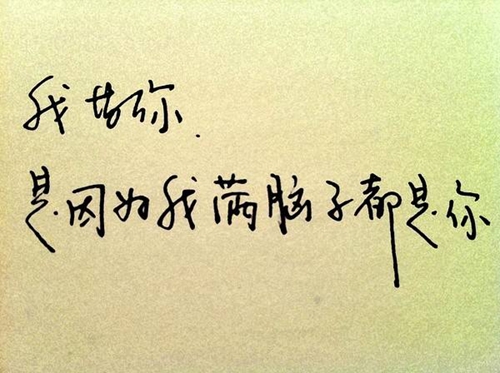 我想你.
是因为我满脑子都是你